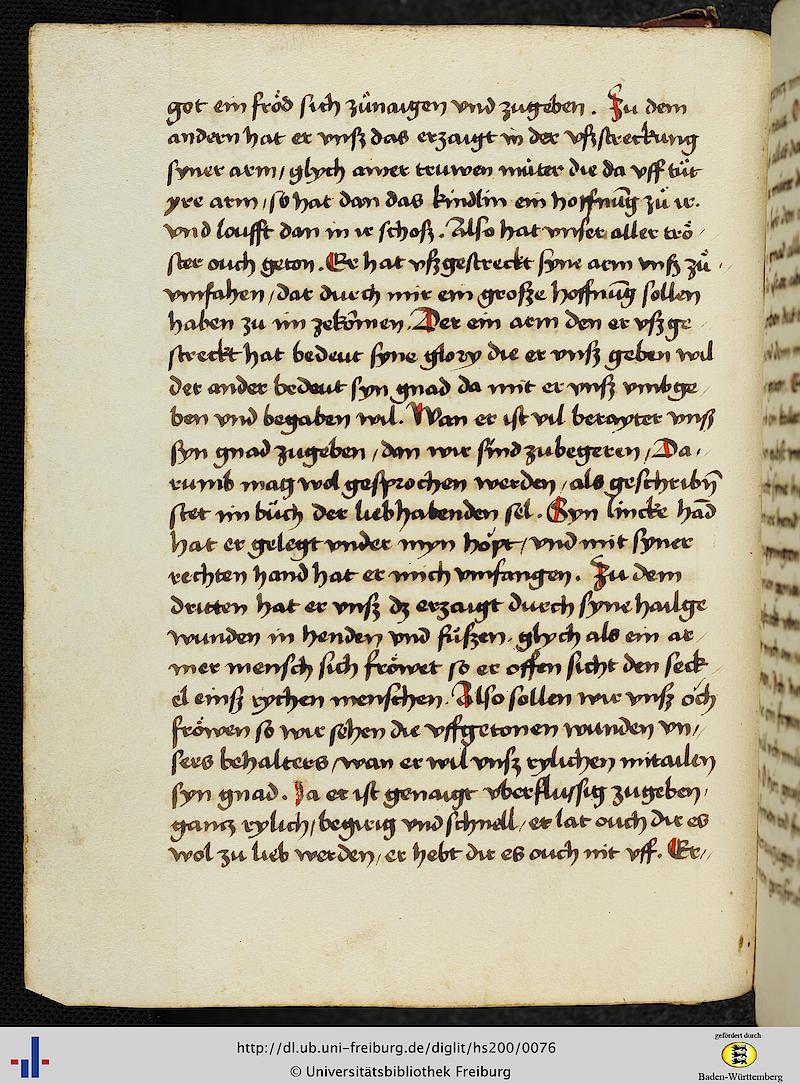 got ein fröd sich zůnaigen vnd zugeben. Zu dem
andern hat er vnſz das erzaigt in der vſzstreckung
syner arm / glych ainer truwen můter die da vff tůt
yre arm / so hat dan das kindlin ein hoffnūg zů ir.
vnd loufft dan in ir schoſz. Also hat vnser aller trö-
ster ouch geton. Er hat vſzgestreckt syne arm vnſz zů
vmfahen / dar durch mir ein groſze hoffnūg sollen
haben zu im zekōmen. Der ein arm den er vſzge
streckt hat bedeut syne glory die er vnſz geben wil
der ander bedeut syn gnad da mit er vnſz vmbge
ben vnd begaben wil. Wan er ist vil berayter vnſz
syn gnad zugeben / dan wir sind zubegeren / Da-
rumb mag wol gesprochen werden / als geschribn̄
stet im bůch der liebhabenden sel. Syn lincke hād
hat er gelegt vnder myn höpt / vnd mit syner
rechten hand hat er mich vmfangen. Zu dem
dritten hat er vnſz dz erzaigt durch syne hailge
wunden in henden vnd fůſzen. glych als ein ar-
mer mensch sich fröwet so er offen sicht den seck-
el einſz rychen menschen. Also sollen wir vnſz och
fröwen so wir sehen die vffgetonen wunden vn//
sers behalters / wan er wil vnſz rylichen mitailen
syn gnad. Ja er ist genaigt vberflussig zugeben.
gancz rylich / begirig vnd schnell / er lat ouch dir es
wol zu lieb werden / er hebt dir es ouch nit vff. Er//
http://dl.ub.uni-freiburg.de/diglit/hs200/0076
© Universitätsbibliothek Freiburg
gefördert durch
Baden-Württemberg